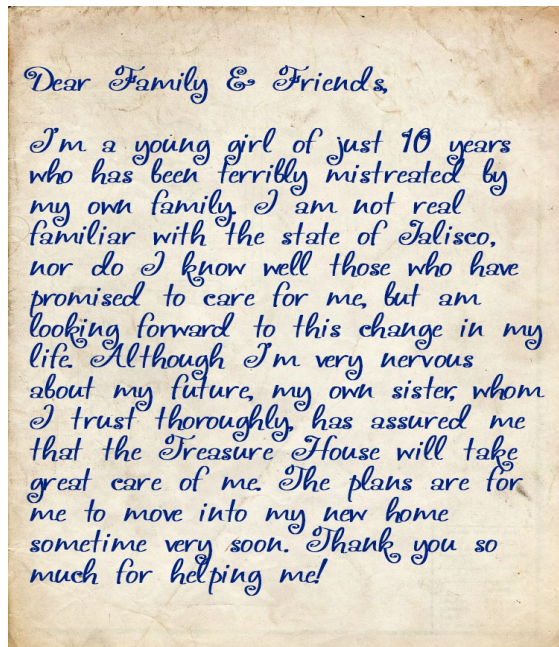 Dear Family & Friends,
I'm a young girl of just 10 years
who has been terribly mistreated by
my own family. I am not real
familiar with the state of Jalisco,
nor do I know well those who have
promised to care for me, but am
looking forward to this change in my
life. Although I'm very nervous
about my future, my own sister, whom
I trust thoroughly, has assured me
that the Treasure House will take
great care of me. The plans are for
me to move into my new home
sometime very soon. Thank you so
much for helping me!